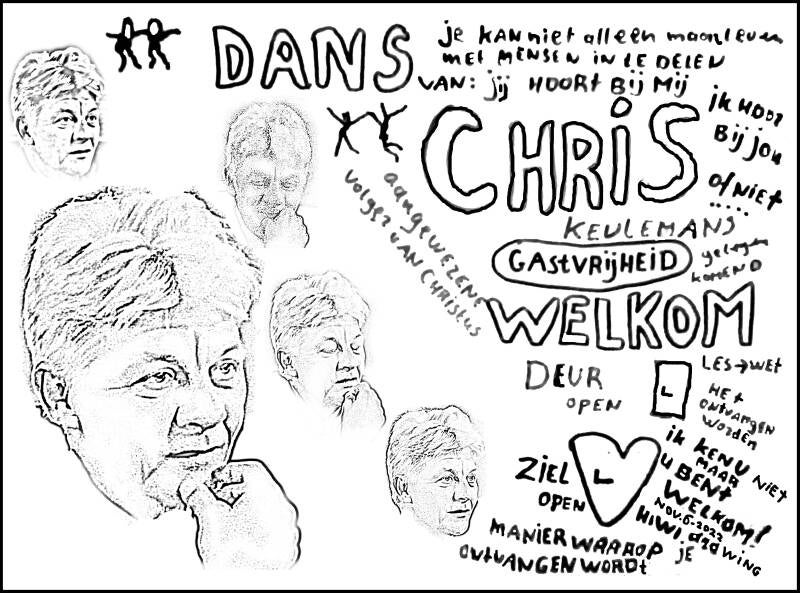 DANS
je KAN niet alleen maar leven
met MENSEN IN
VAN: jij HOORT BIJ MIJ
IK HOOR
BIJ jou
OF NIET
.....
CHRIS
KEULEMANS
aangewezene
volger VAN CHRISTUS
GASTVRIJHEID
gelegen
KOMEND
WELKOM
DEUR
OPEN
LES→WET
HET
ONTVANGEN
WORDEN
ZIEL
OPEN
ik KEN U NIET
MAAR
U BENT
WELKOM!
NOV.6-2022
HIWI drawing
MANIER WAAROP JE
ONTVANGEN WORDT